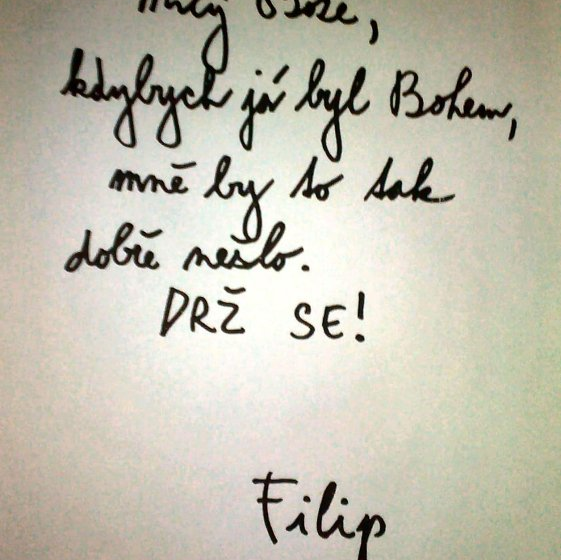 Milý Bože,
kdybych já byl Bohem,
mně by to tak
dobře nešlo.
DRŽ SE!
Filip